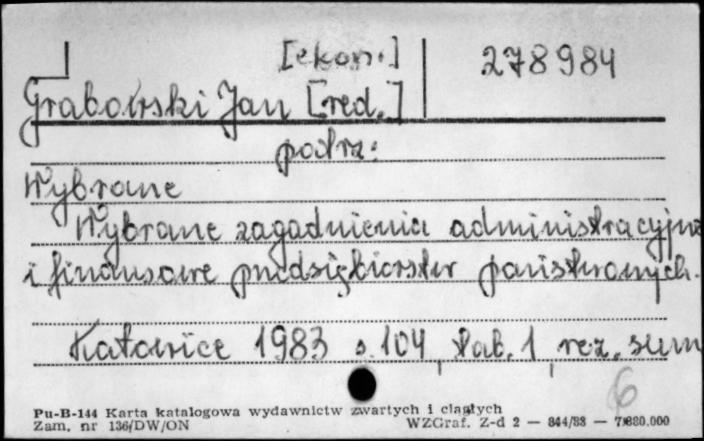 [ekon.]
278984
Grabowski Jan [red.]
patrz:
Wybrane
Wybrane zagadnienia administracyjne
i finansowe przedsiębiorstw państwowych.
Katowice 1983 s. 104, tab. 1, rez. sum
6
Pu-B-144 Karta katalogowa wydawnictw zwartych i ciągłych
Zam. nr 136/DW/ON WZGraf. Z-d 2 — 844/83 — 7.880.000